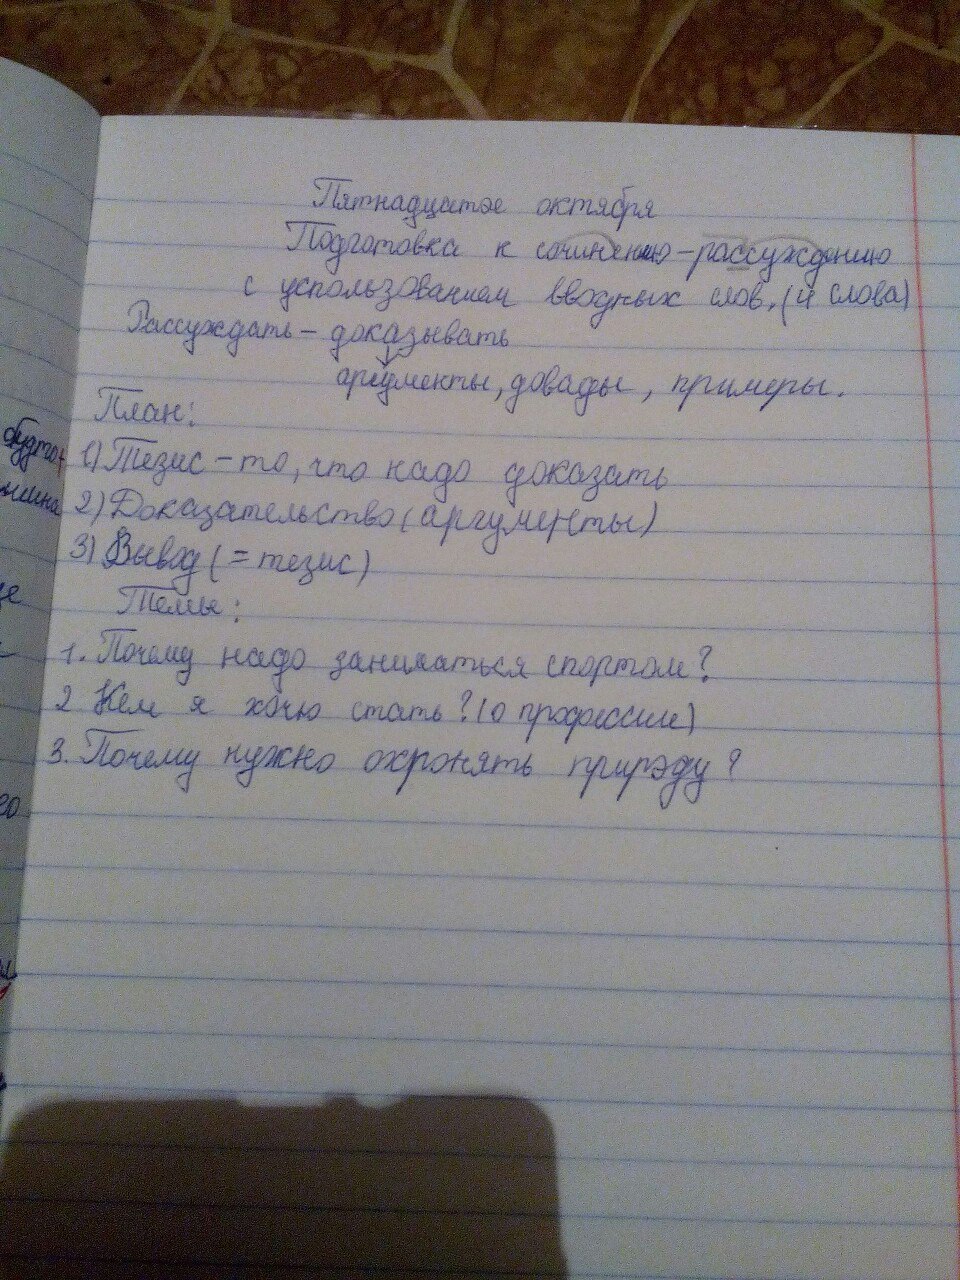 Пятнадцатое октября
Подготовка к сочинению-рассуждению
с успользованием вводных слов. (4 слова)
Рассуждать - доказывать
аргументы, довады, примеры.
План:
1) Тезис - то, что надо доказать
2) Доказательство (аргументы)
3) Вывод (= тезис)
Темы:
1. Почему надо заниматься спортом?
2 Кем я хочу стать? (о профессии)
3. Почему нужно охронять природу?